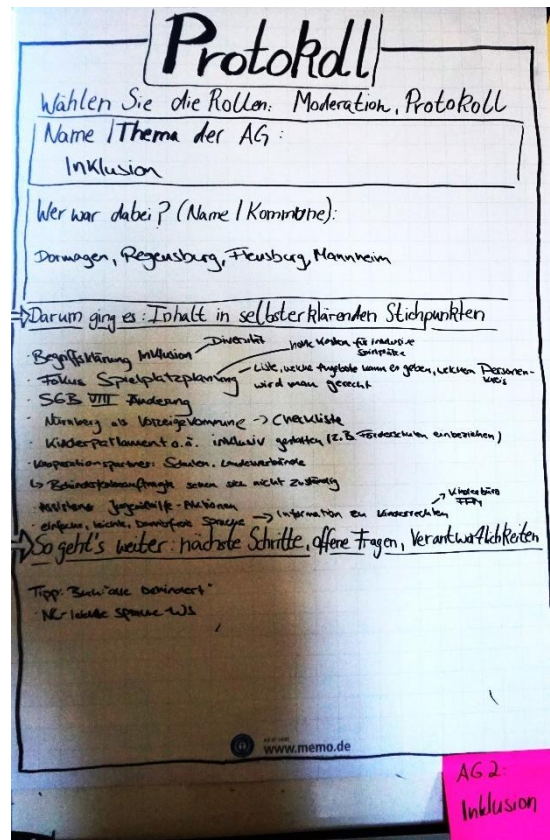 Protokoll
Wählen Sie die Rollen: Moderation, Protokoll
Name / Thema der AG:
Inklusion
Wer war dabei? (Name / Kommune):
Dormagen, Regensburg, Flensburg, Mannheim
Darum ging es: Inhalt in selbsterklärenden Stichpunkten
· Begriffsklärung Inklusion Diversität
hohe Kosten für inklusive
Spielplätze
· Fokus Spielplatzplanung Liste, welche Angebote kann es geben, welchem Personen-
kreis
wird man gerecht
· SGB VIII Änderung
· Nürnberg als Vorzeigekommune → Checkliste
· Kinderparlament o.ä. inklusiv gestalten (z.B. Förderschulen einbeziehen)
· Kooperationspartner: Schulen, Landesverbände
↳ Behindertenbeauftragte sehen sich nicht zuständig
· Assistenz Jugendhilfe-Aktionen
· einfache, leichte, Sprache → Information zu Kinderrechten
→ Kinderbüro
FFM
So geht's weiter: nächste Schritte, offene Fragen, Verantwortlichkeiten
Tipp: Buch "alle behindert"
· leichte Sprache WS
www.memo.de
AG 2:
Inklusion